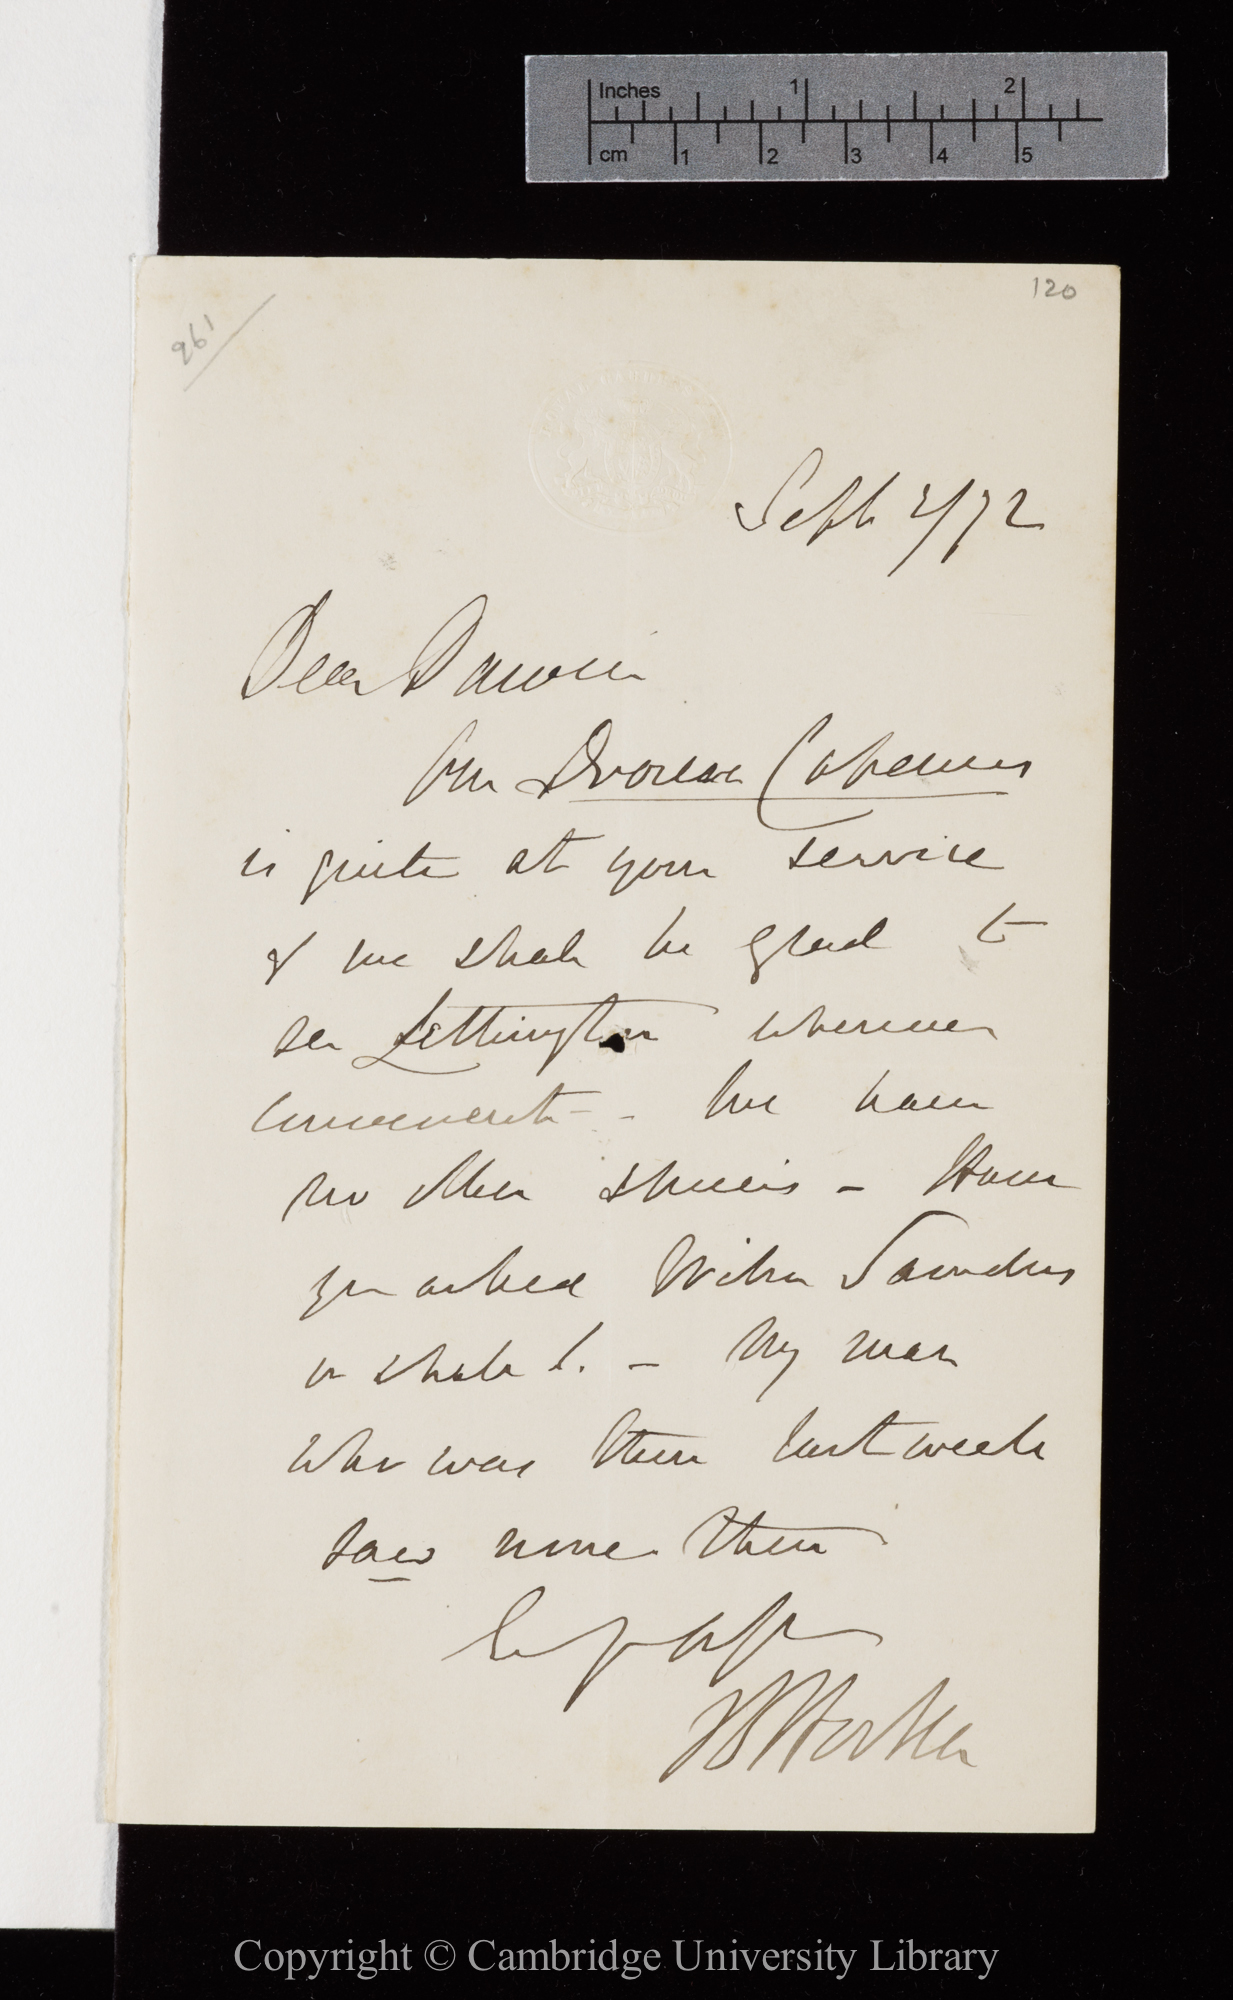 Inches 1 2
cm 1 2 3 4 5
120
261
Sept 2/72
Dear Darwin
Our Drosera Capensis
is quite at your service
& we shall be glad to
see Lettington whenever
convenient — We have
no other species — Have
you asked Wilson Saunders
or shall I. — My man
who was there last week
saw none there
Ev yr aff
J D Hooker
Copyright © Cambridge University Library